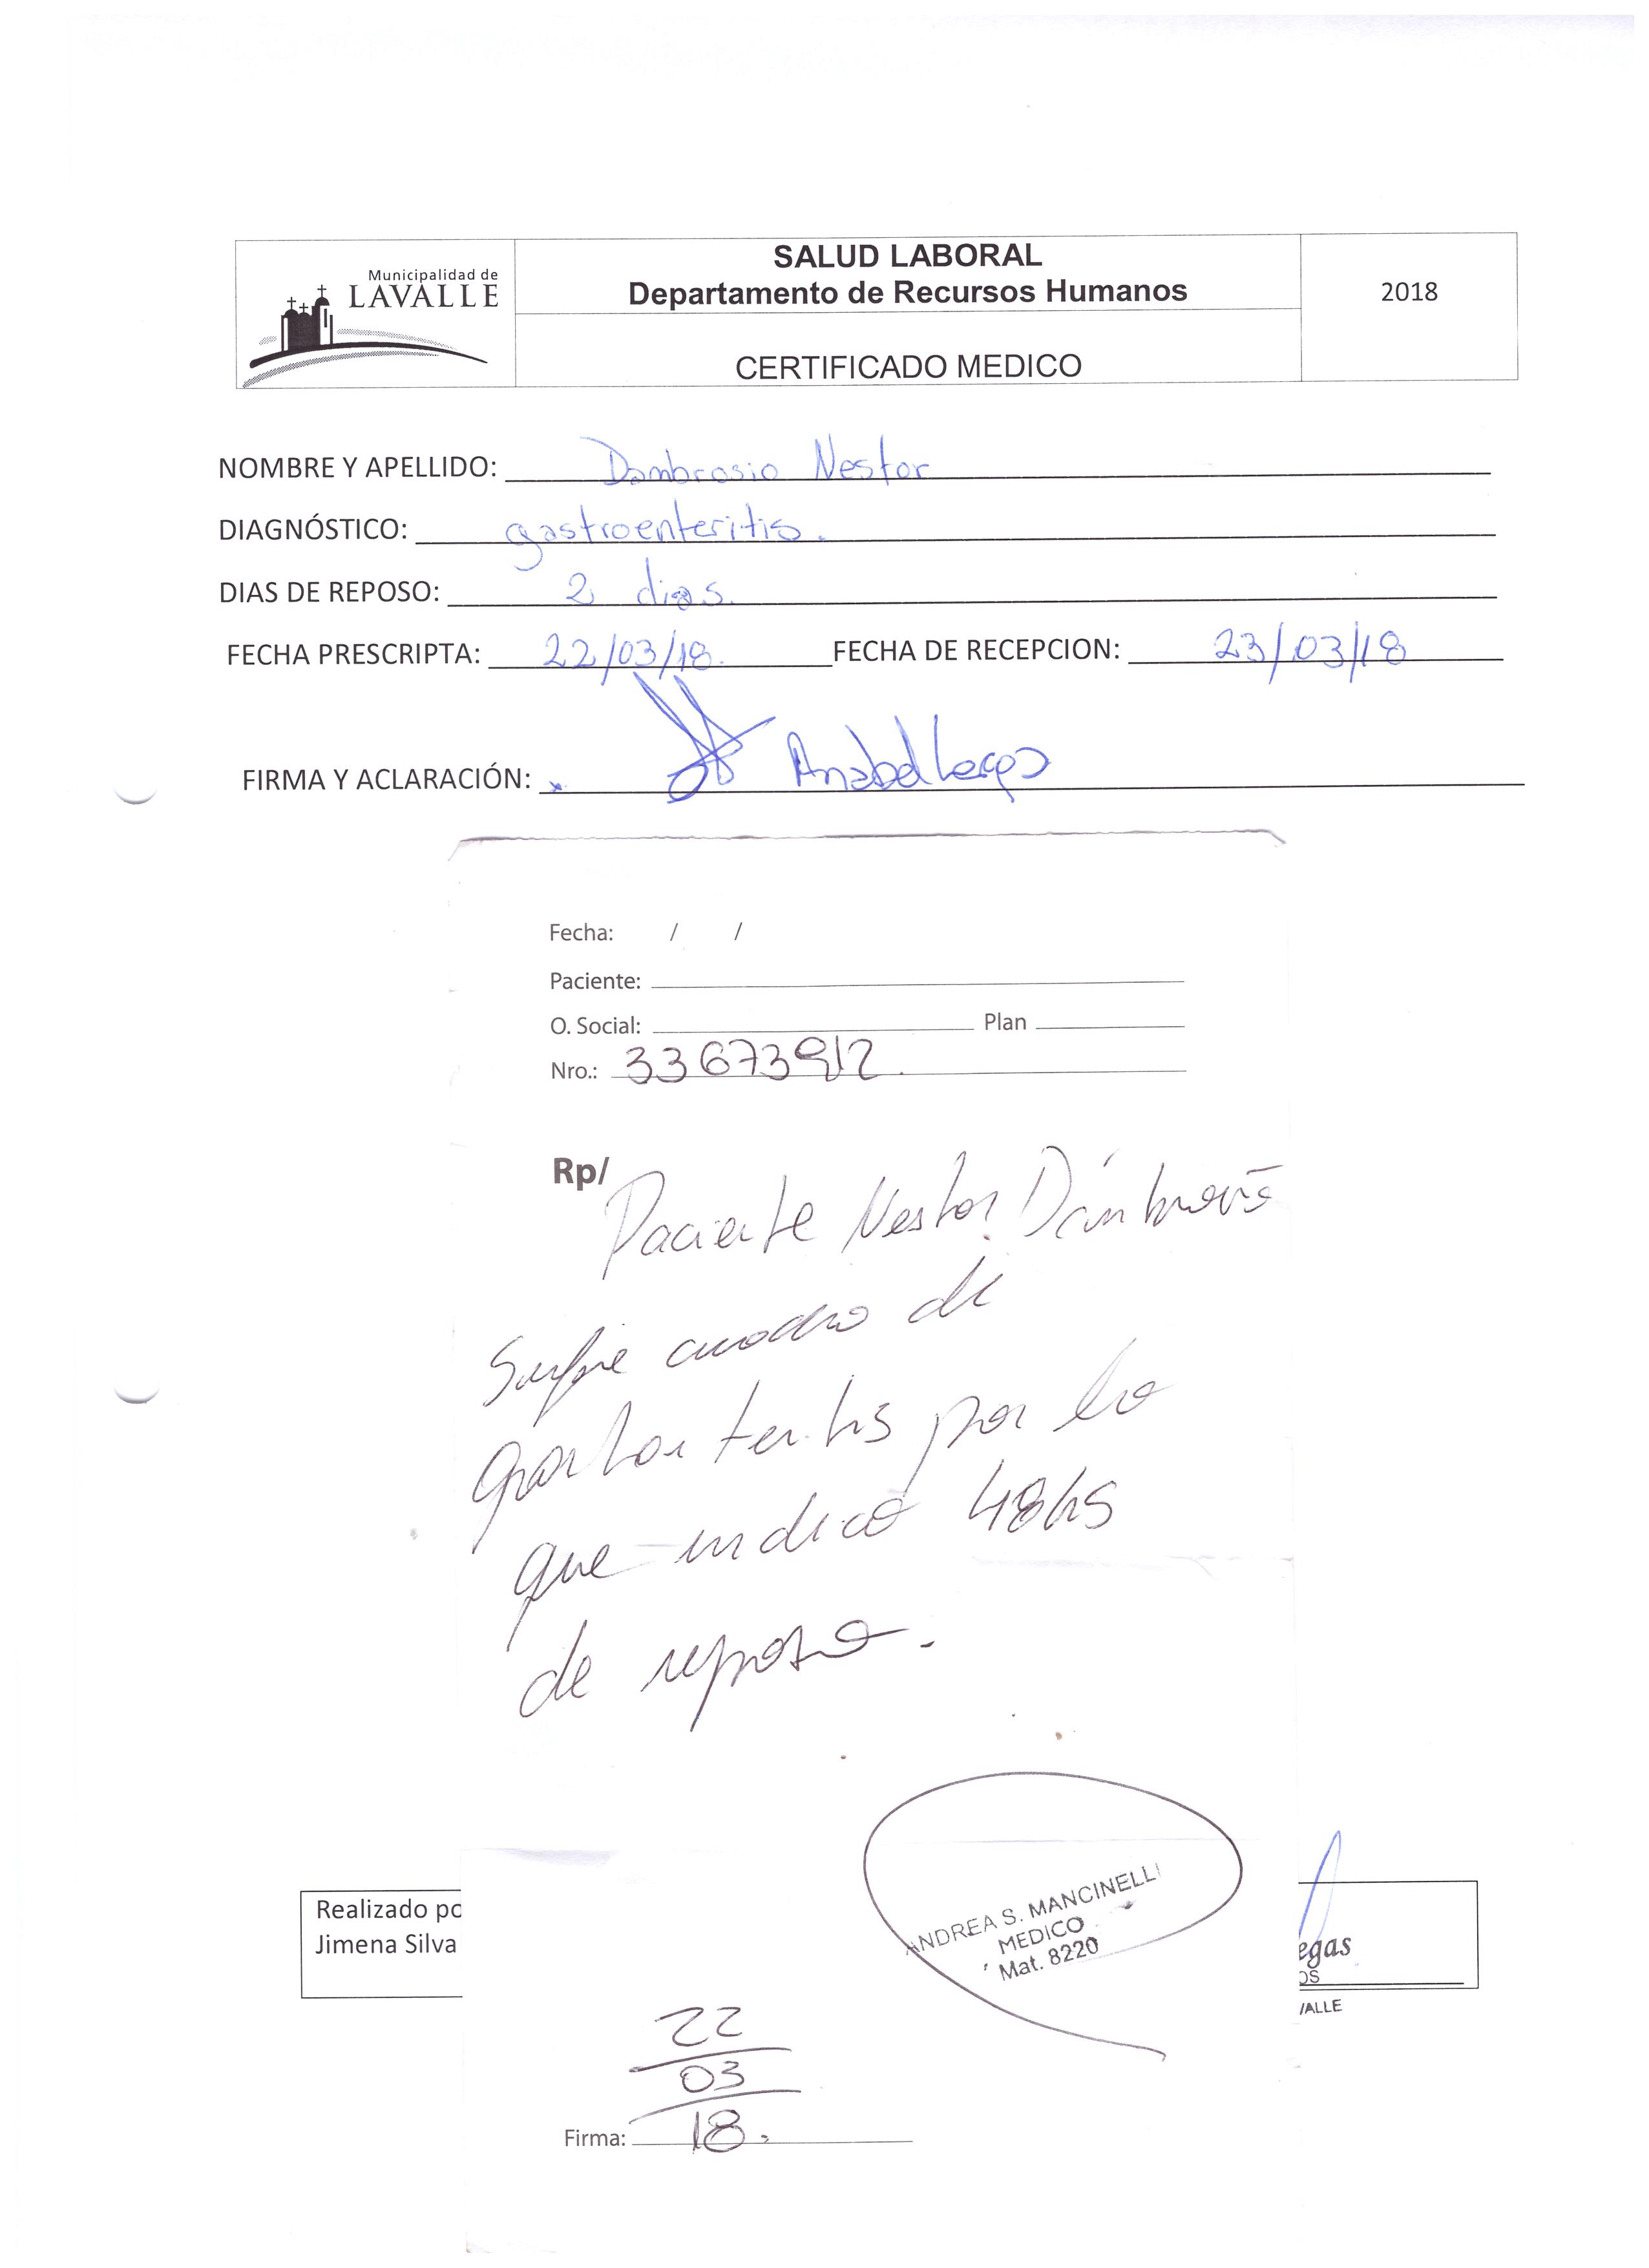 Municipalidad de
LAVALLE
SALUD LABORAL
Departamento de Recursos Humanos
CERTIFICADO MEDICO
2018
NOMBRE Y APELLIDO: Dambrosio Nestor
DIAGNÓSTICO: gastroenteritis.
DIAS DE REPOSO: 2 dias.
FECHA PRESCRIPTA: 22/03/18. FECHA DE RECEPCION: 23/03/18
FIRMA Y ACLARACIÓN: Anabel
Fecha: / /
Paciente:
O. Social: Plan
Nro.: 33673912.
Rp/
Paciente Nestor
Sufre cuadro de
por lo
que indico 48hs
de reposo.
ANDREA S. MANCINELLI
MEDICO
Mat. 8220
Realizado po
Jimena Silva
egas
OS
VALLE
22
03
18.
Firma: